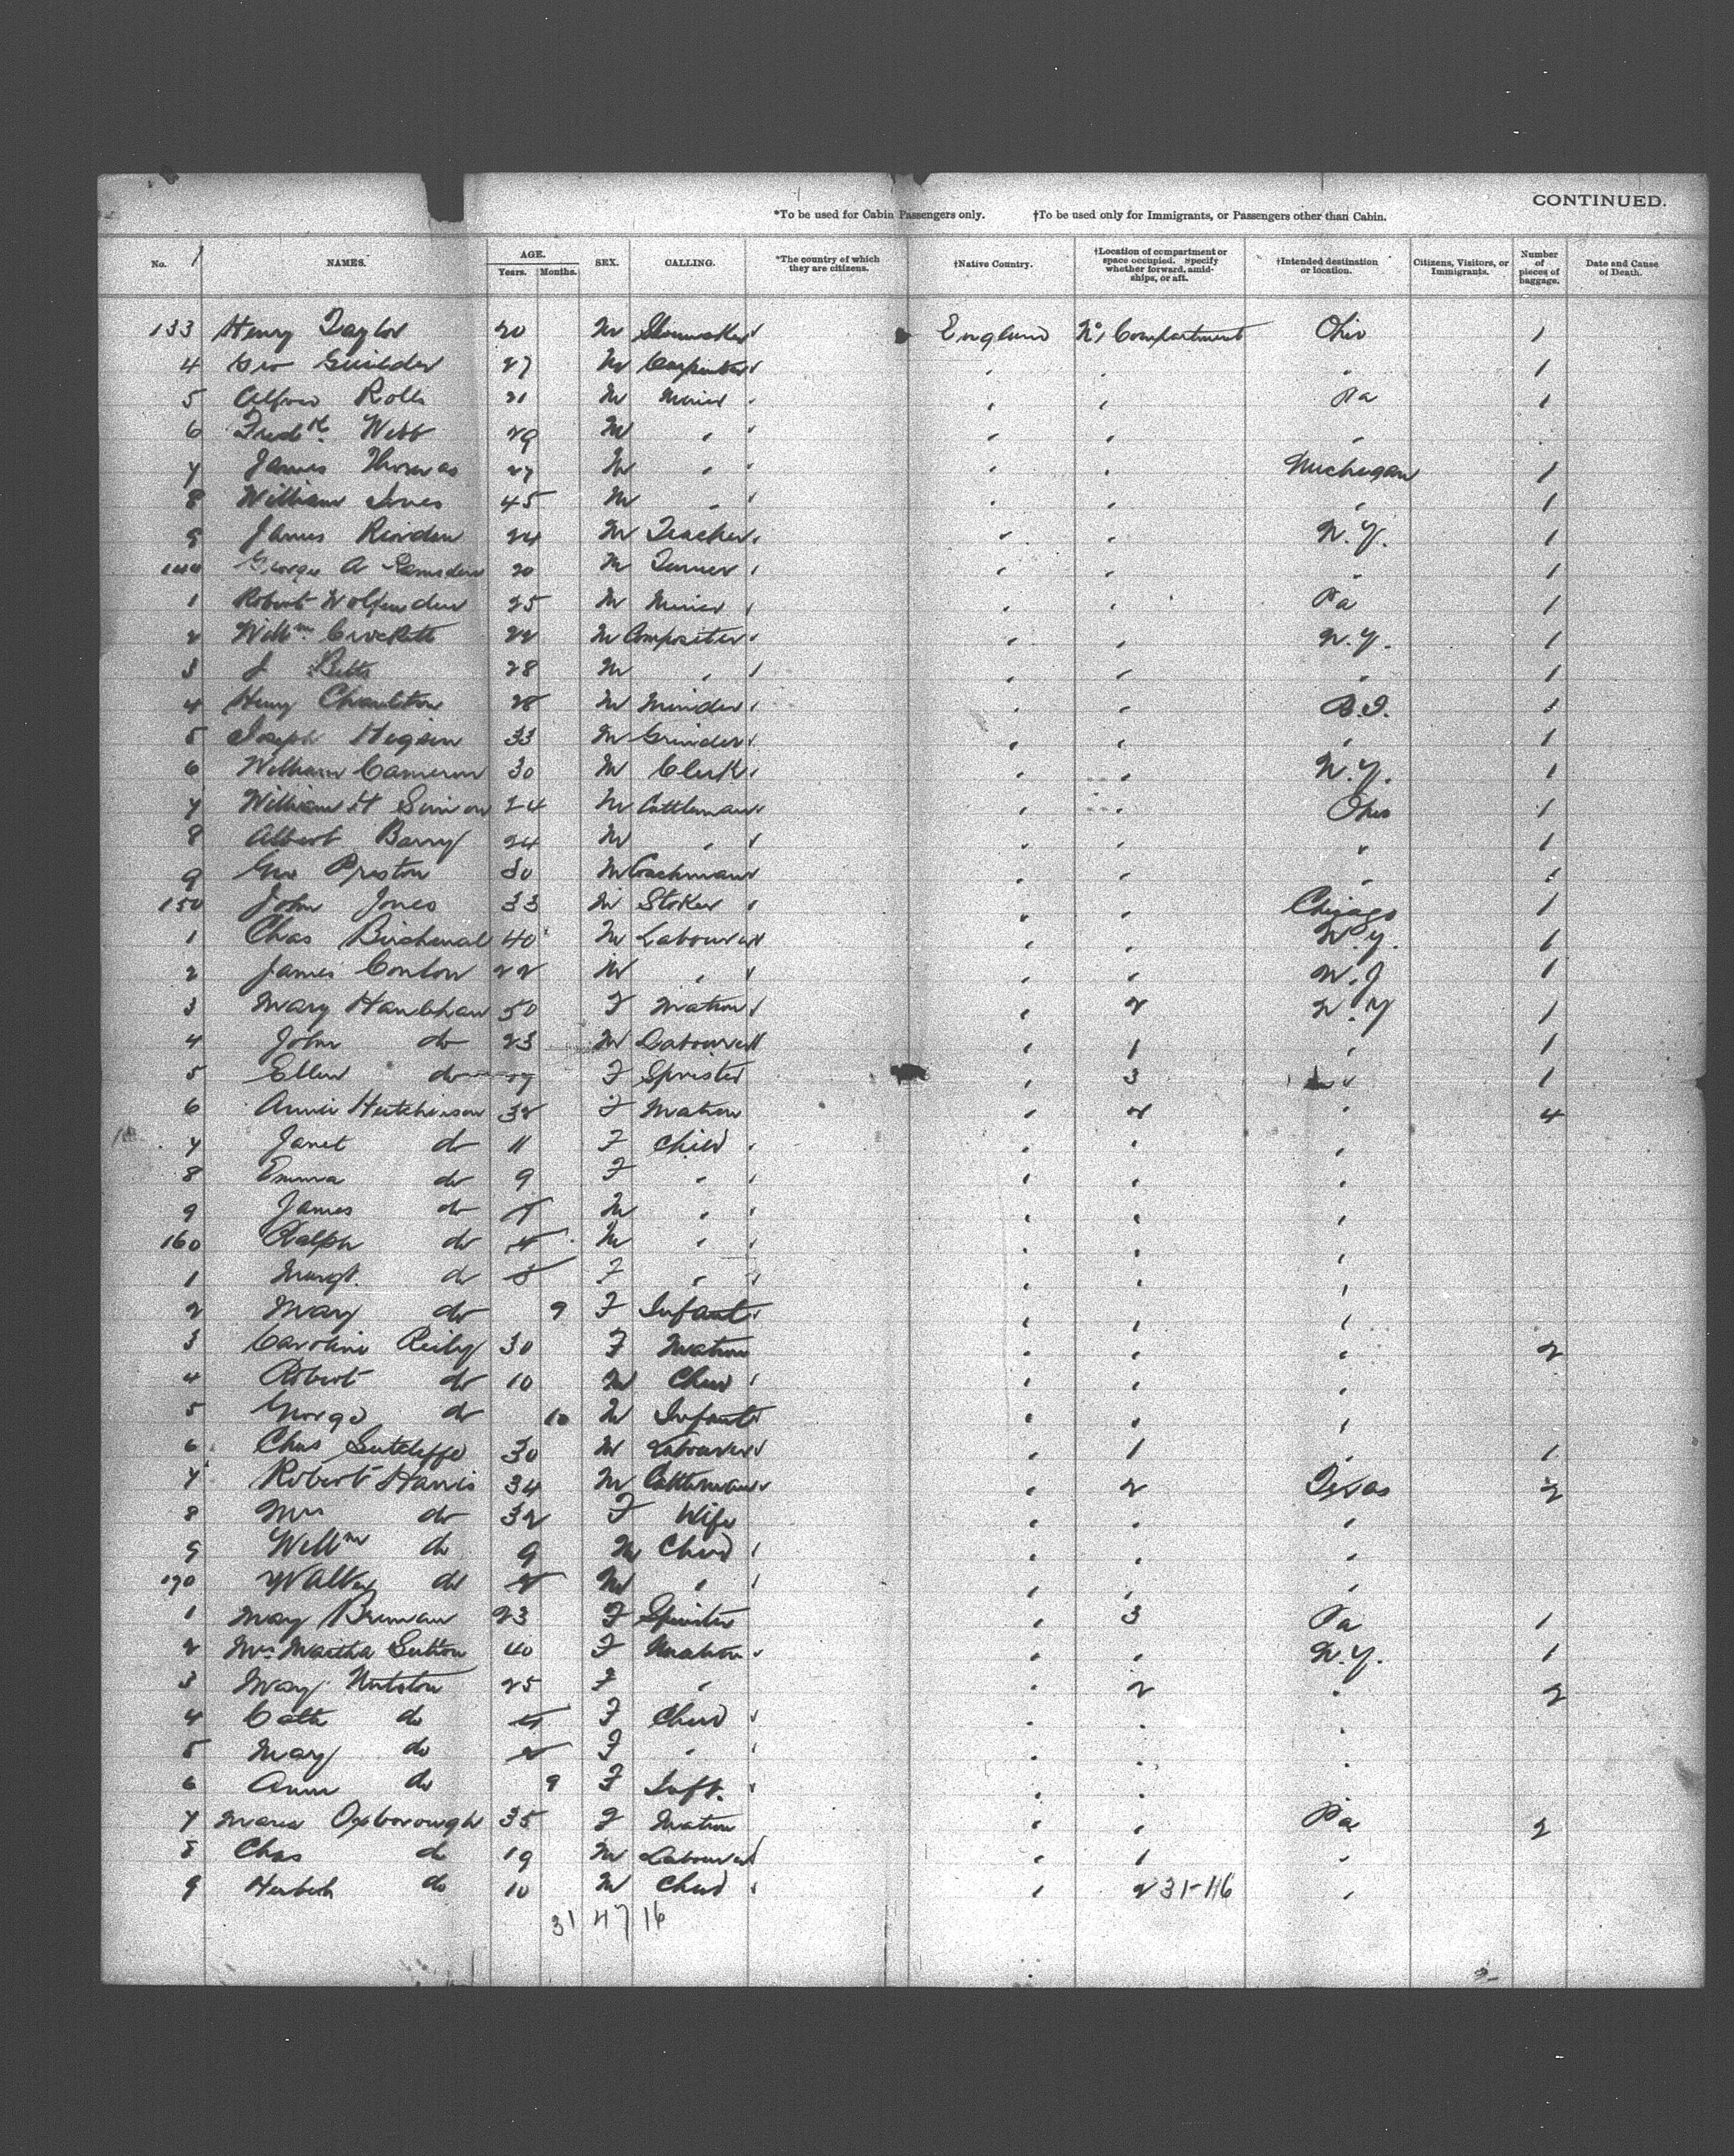 CONTINUED.
*To be used for Cabin Passengers only. †To be used only for Immigrants, or Passengers other than Cabin.
No. NAMES. AGE. Years. Months. SEX. CALLING. *The country of which they are citizens. †Native Country. †Location of compartment or space occupied. Specify whether forward, amidships, or aft. †Intended destination or location. Citizens, Visitors, or Immigrants. Number of pieces of baggage. Date and Cause of Death.
133 Henry Taylor 20 M England No 1 Compartment Ohio 1
4 Geo 27 M Carpenter " " " 1
5 Alfred Rolls 21 M Miner " " Pa 1
6 Fredk. Webb 29 M " " " "
7 James Thomas 27 M " " " Michegan 1
8 William Jones 45 M " " " " 1
9 James 24 M Teacher " " N.Y. 1
140 George A 20 M Turner " " " 1
1 Robert Wolfenden 25 M Miner " " Pa 1
2 Willm Crockett 22 M Compositer " " N.Y. 1
3 J Betts 28 M " " " " 1
4 Henry Charleton 28 M Minder " " R.I. 1
5 Joseph Higson 33 M Grinder " " " 1
6 William Cameron 30 M Clerk " " N.Y. 1
7 William H 24 M Cattleman " " Ohio 1
8 Albert Barry 24 M " " " " 1
9 Geo Preston 30 M Coachman " " " 1
150 John Jones 33 M Stoker " " Chicago 1
1 Chas 40 M Labourer " " N.Y. 1
2 James Conlon 22 M " " " N.J 1
3 Mary Hanlehan 50 F Matron " 2 N.Y 1
4 John do 23 M Labourer " 1 " 1
5 Ellen do F Spinster " 3 " 1
6 Annie Hutchinson 32 F Matron " 2 " 4
7 Janet do 11 F Child " " "
8 Emma do 9 F " " " "
9 James do 7 M " " " "
160 Ralph do 4 M " " " "
1 Margt. do 3 F " " " "
2 Mary do 9 F Infant " " "
3 Caroline Reily 30 F Matron " " " 2
4 Robert do 10 M Child " " "
5 George do 10 M Infant " " "
6 Chas Sutcliffe 30 M Labourer " 1 " 1
7 Robert Harris 34 M Cattleman " 2 Texas 2
8 Mrs do 32 F Wife " " "
9 Willm do 9 M Child " " "
170 Walter do 2 M " " " "
1 Mary Brennan 23 F Spinster " 3 Pa 1
2 Mrs Martha Sutton 40 F Matron " " N.Y. 1
3 Mary 25 F " " 2 " 2
4 Cath do 4 F Child " " "
5 Mary do 2 F " " " "
6 Ann do 9 F Inft. " " "
7 Maria Oxborough 35 F Matron " " Pa 2
8 Chas do 19 M Labourer " 1 "
9 Herbert do 10 M Child " 2 31-116 "
31 47 16